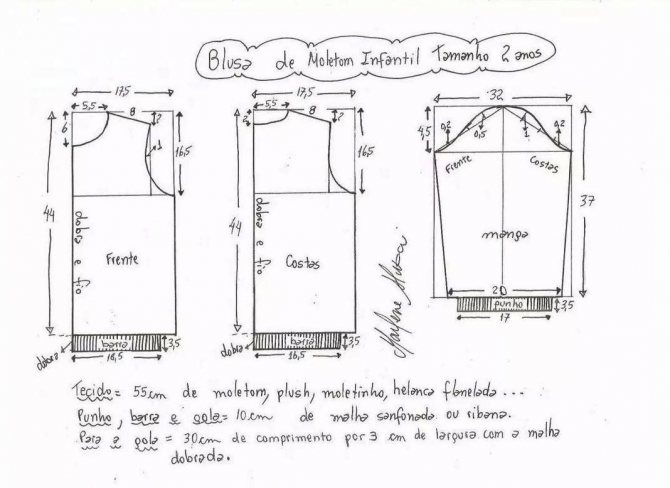 Blusa de Moletom Infantil Tamanho 2 anos
17,5
5,5
8
2
6
1
16,5
44
dobra e fio
Frente
barra
3,5
dobra
16,5
17,5
5,5
8
2
2
16,5
44
dobra e fio
Costas
barra
3,5
dobra
16,5
32
4,5
0,2
0,5
1
0,2
Frente
Costas
37
manga
20
punho
3,5
17
Tecido = 55cm de moletom, plush, moletinho, helanca flanelada ...
Punho, barra e gola = 10cm de malha sanfonada ou ribana.
Para a gola = 30cm de comprimento por 3 cm de largura com a malha
dobrada.